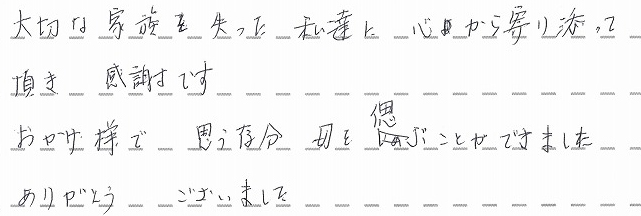 大切な家族を失った 私達に 心から寄り添って
頂き 感謝です
おかげ様で 思う存分 母を 偲ぶことができました
ありがとう ございました